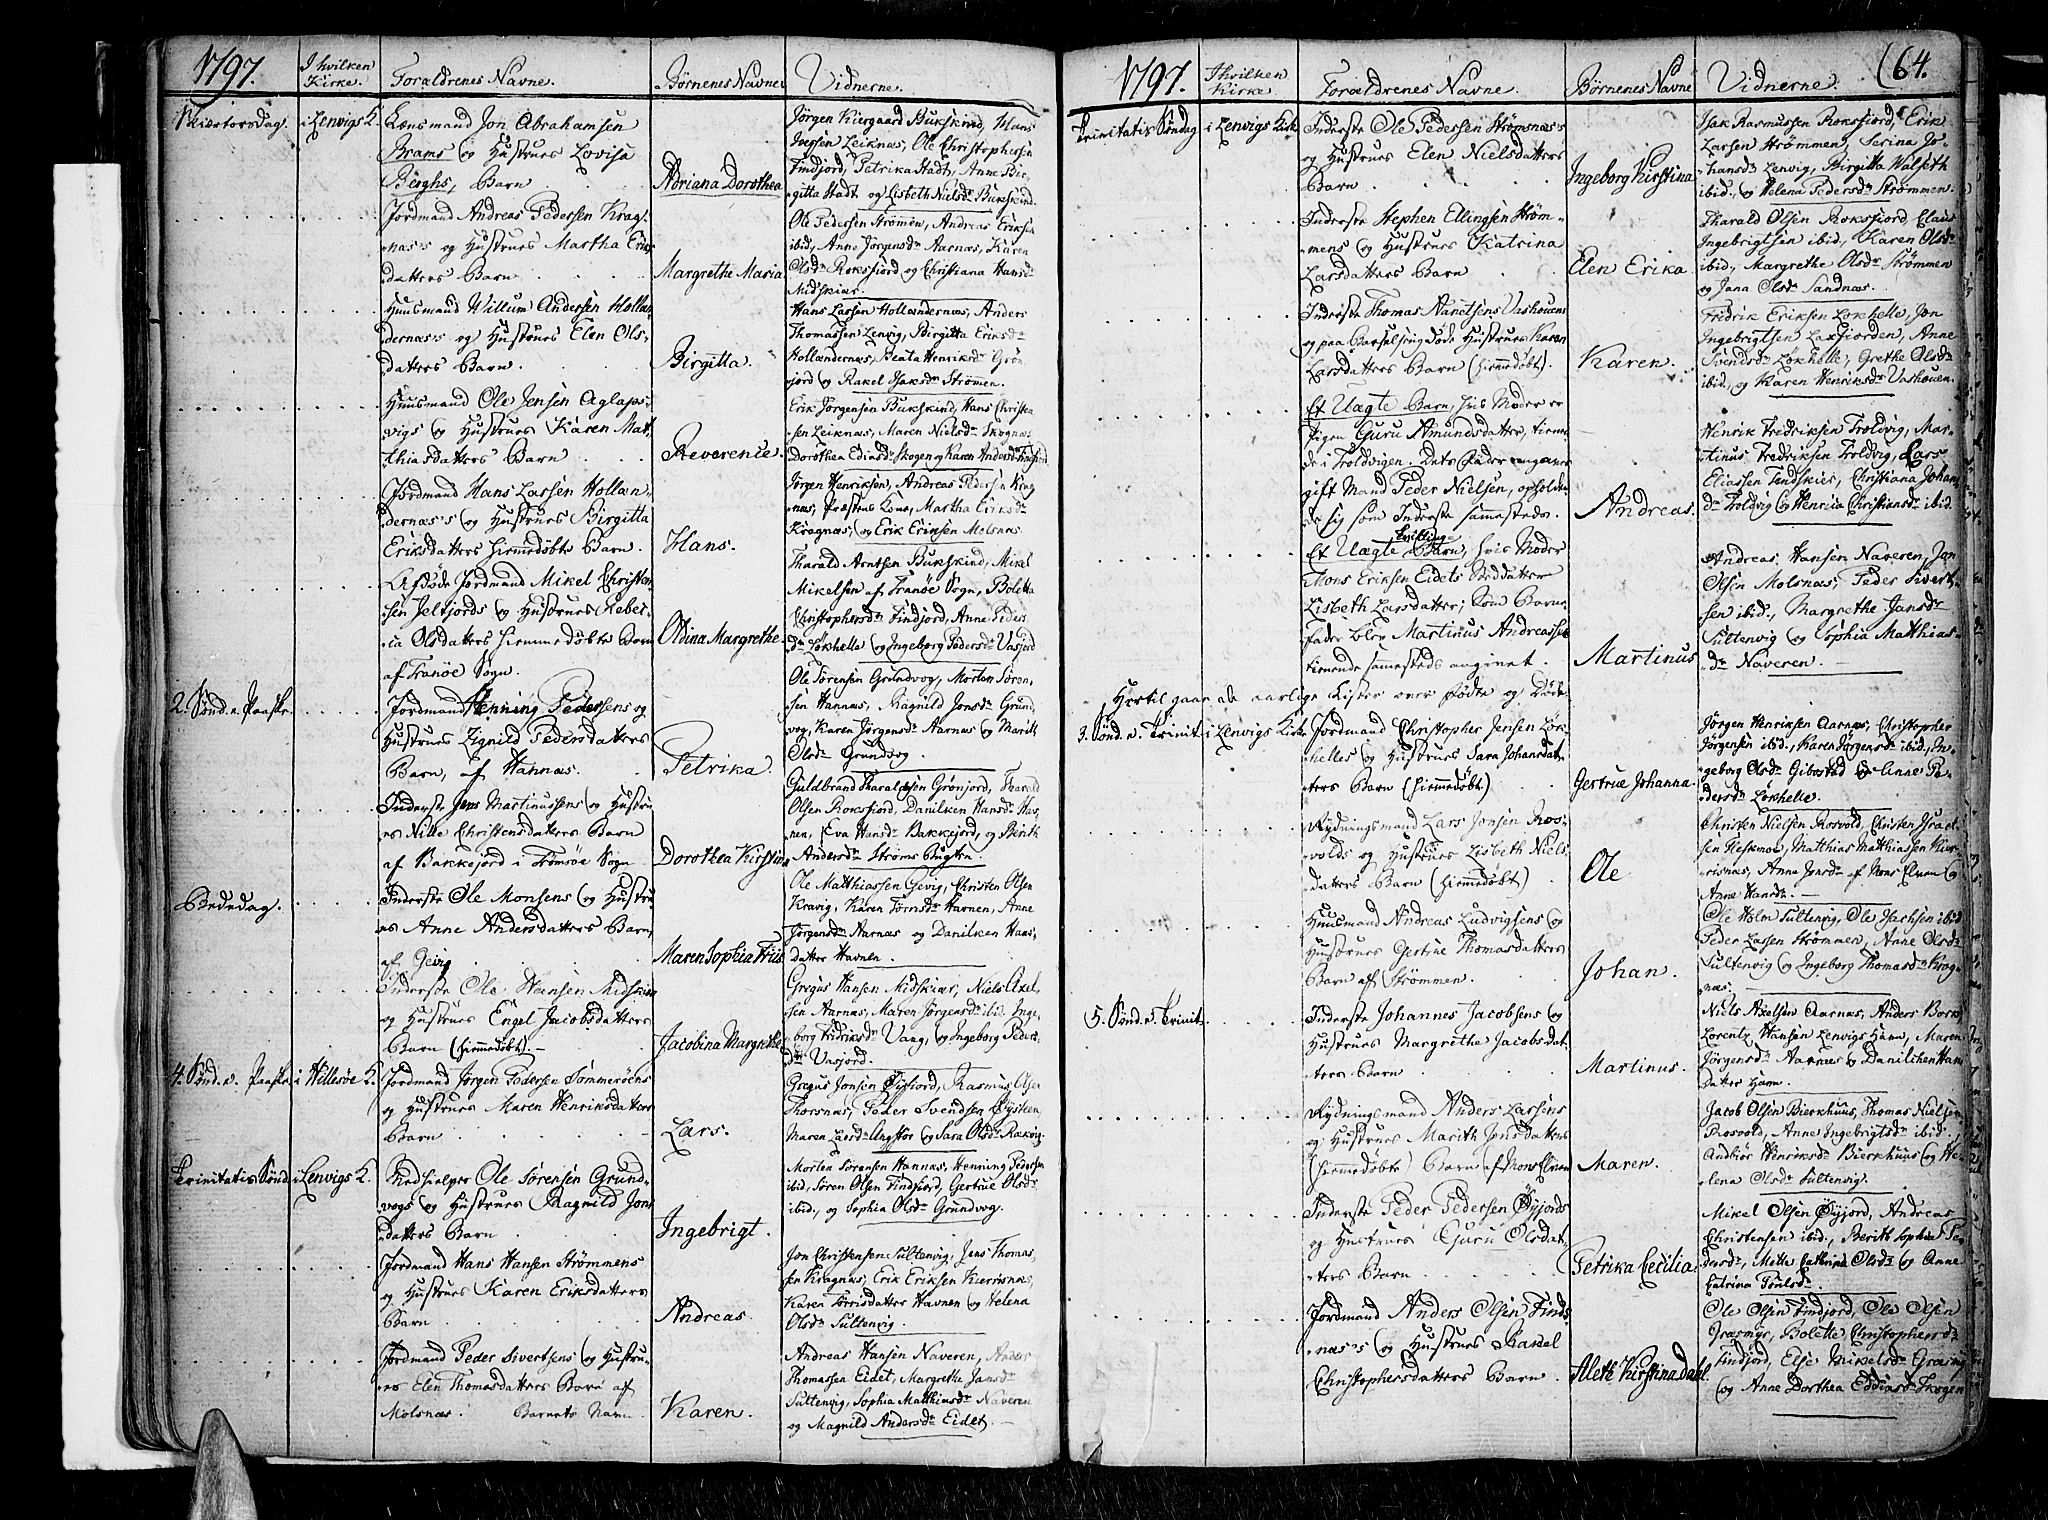 1797.
I hvilken
Kirke.
Forældrenes Navne.
Børnenes Navne
Vidnerne.
Skiertorsdag.
i Lenvigs K.
Lensmand Jon Abrahamsen
Brams og Hustrues Lovisa
Berghs, Barn
Adriana Dorothea
Jörgen Kiergaard Bukskind, Hans
Iversen Leiknæs, Ole Christophersen
Findjord, Petrika Stadt, Anne Bir-
gitta Stadt og Lisbeth Nielsdr Bukskind.
Jordmand Andreas Pedersen Krag-
næs's og Hustrues Martha Eriks
datters Barn
Margrethe Maria
Ole Pedersen Strömen, Andreas Eriksen
ibid, Anne Jörgensdr Aarnæs, Karen
Olsdr Roksfjord og Christiana Hansdr
Midskiær.
Huusmand Willum Andersen Hollæn-
dernæs's og Hustrues Elen Ols-
datters Barn.
Birgitta.
Hans Larsen Hollændernæs, Anders
Thomassen Lenvig, Birgitta Eriksdr
Hollændernæs, Beata Henriksdr Grön-
jord og Rakel Isaksdr Strömen.
Huusmand Ole Jensen Aglaps-
vigs og Hustrues Karen Mat-
thiasdatters Barn
Reverence.
Erik Jörgensen Bukskind, Hans Christen
sen Leiknæs, Maren Nielsdr Skognæs
Dorothea Ediasdr Skogen og Karen Andersdr
Jordmand Hans Larsen Hollæn-
dernæs's og Hustrues Birgitta
Eriksdatters hiemedöbte Barn.
Hans.
Jörgen Henriksen, Andreas Pedersen Krag
næs, Præstens Kone, Martha Eriksdr
Kragnæs, og Erik Eriksen Molsnæs.
Afdöde Jordmand Mikel Christen-
sen Selfjords og Hustrues Rebec-
ca Olsdatters hiemmedöbte Barn
af Tranöe Sogn.
Oldina Margrethe
Tharald Arntsen Bukskind, Mikel
Mikelsen af Tranöe Sogn, Boletta
Christophersdr Findjord, Anne Peders
dr Lökhelle og Ingeborg Pedersdr Vasjord
2. Sönd. e. Paaske.
Jordmand Henning Pedersens og
Hustrues Zignild Pedersdatters
Barn, af Hannæs.
Petrika.
Ole Sörensen Grundvog, Morten Sören-
sen Hannæs, Magnild Jonsdr Grund-
vog, Karen Jörgensdr Aarnæs og Marith
Olsdr Grundvog.
Inderste Jens Martinussens og Hustru
es Nille Christensdatters Barn
af Bakkejord i Tromsöe Sogn
Dorothea Kirstine
Guldbrand Tharaldsen Grönjord, Tharald
Olsen Roksfiord, Danilken Hansdr Hav-
nen, Eva Hansdr Bakkejord, og Berith
Andersdr Ströms Bugten.
Bededag.
Inderste Ole Monsens og Hustru-
es Anne Andersdatters Barn,
af Gevig
Maren Sophia Friis
Ole Matthiassen Gevig, Christen Olsen
Kravig, Karen Törrisdr Havnen, Anne
Jörgensdr Aarnæs og Danilken Hans-
datter Havnen.
Inderste Ole Hansen Midskiær
og Hustrues Engel Jacobsdatters
Barn (hiemmedöbt).
Jacobina Margrethe
Gregus Hansen Midskiær, Niels Axel-
sen Aarnæs, Maren Jörgensdr ibid. Inge-
borg Fridriksdr Vang, og Ingeborg Peders-
dr Vasjord.
4. Sönd. e. Paaske.
i Hillesöe K.
Jordmand Jörgen Pedersen Sommeröens
og Hustrues Maren Henriksdatters
Barn
Lars.
Gregus Jonsen Öifiord, Rasmus Olsen
Thorsnæs, Peder Svendsen Öysteen,
Maren Larsdr og Sara Olsdr Rækvig.
Trinitatis Sönd.
i Lenvigs K.
Medhielper Ole Sörensen Grund-
vogs og Hustrues Magnild Jons
datters Barn
Ingebrigt.
Morten Sörensen Hannæs, Henning Pedersen
ibid, Sören Olsen Findjord, Gertrue Olsdr
ibid., og Sophia Olsdr Grundvog.
Jordmand Hans Hansen Strömmens
og Hustrues Karen Eriksdatters
Barn.
Andreas.
Jon Christensen Sultenvig, Jens Thomas-
sen Kragnæs, Erik Eriksen Kierrisnæs,
Karen Törrisdatter Havnen og Helena
Olsdr Sultenvig.
Jordmand Peder Sivertsens og Hustru-
es Elen Thomasdatters Barn af
Molsnæs. Barnets Navn
Karen.
Andreas Hansen Naveren, Anders
Thomassen Eidet, Margrethe Jansdr
Sultenvig, Sophia Matthiasdr Naveren
og Magnild Andersdr Eidet.
1797.
I hvilken
Kirke
Forældrenes Navne.
Börnenes Navne
Vidnerne.
64.
Trinitatis Söndag
i Lenvigs Kirke
Inderste Ole Pedersen Strömsnæs's
og Hustrues Elen Nielsdatters
Barn
Ingeborg Kirstina
Isak Rasmussen Roksfiord, Erik
Larsen Strömmen, Serina Jo-
hansdr Lenvig, Birgitta Walseth
ibid, og Helena Pedersdr Strömmen.
Inderste Stephen Ellingsen Ström-
mens og Hustrues Katrina
Larsdatters Barn
Elen Erika
Tharald Olsen Roksfiord, Claus
Ingebrigtsen ibid, Karen Olsdr
ibid, Margrethe Olsdr Strömmen
og Jana Olsdr Sandnæs.
Inderste Thomas Nanetsens Vashouens
og paa Barselseng döde Hustrues Karen
Larsdatters Barn (hiemmedöbt).
Karen.
Fredrik Eriksen Lökhelle, Jon
Ingebrigtsen Laxfjorden, Anne
Svendsdr Lökhelle, Grethe Olsdr
ibid., og Karen Henriksdr Vashouen.
Et Uægte Barn, hvis Moder er
Pigen Guru Amundsdatter, tienen-
de i Troldvigen. Dets Fader angaves
gift Mand Peder Nielsen, opholden-
de sig som Inderste sammesteds.
Andreas.
Henrik Fredriksen Troldvig, Mar-
tinus Fredriksen Troldvig, Lars
Eliassen Findskier, Christiana Johans
dr Troldvig og Henrica Christiansdr ibid.
Et Uægte Tvilling Barn, hvis Moder
Mons Eriksen Eidets Steddatter
Lisbeth Larsdatter; Som Barne-
fader blev Martinus Andreassen
tienende sammesteds angivet.
Martinus
Andreas Hansen Naveren, Jan
Olsen Molsnæs, Peder Sivert-
sen ibid., Margrethe Jansdr
Sultenvig og Sophia Matthias-
dr Naveren.
Hertil gaar de aarlige Lister over födte og Döde
3. Sönd. e. Trinit.
i Lenvigs Kirke
Jordmand Christopher Jensen Lök-
helles og Hustrues Sara Johansdat-
ters Barn (hiemmedöbt).
Gertrue Johanna.
Jörgen Henriksen Aarnæs, Christopher
Jörgensen ibid., Karen Jörgensdr ibid., In-
geborg Olsdr Gibostad og Anne Pe-
dersdr Lökhelle.
Rydningsmand Lars Jonsen Ros-
volds og Hustrues Lisbeth Niels
datters Barn (hiemmedöbt)
Ole
Christen Nielsen Rosvold, Christen Israel-
sen Heskmoe, Matthias Matthiassen Kier-
risnæs, Anne Jonsdr af Mons Elven og
Anne Hansdr
Huusmand Andreas Ludvigsens og
Hustrues Gertrue Thomasdatters
Barn af Strömmen.
Johan.
Ole Holm Sultenvig, Ole ibid
Peder Larsen Strömmen, Anne Olsdr
Sultenvig og Ingeborg Thomasdr Krag-
næs.
5. Sönd. e. Trinit.
Inderste Johannes Jacobsens og
Hustrues Margrethe Jacobsdat-
ters Barn
Martinus.
Niels Axelsen Aarnæs, Anders Bork
Lorentz Hansen Lenvigs Havn, Maren
Jörgensdr Aarnæs og Danilchen Hans
datter Havn.
Rydningsmand Anders Larsens
og Hustrues Marith Jonsdatters
(hiemmedöbte) Barn af Mons Elven
Maren.
Jacob Olsen Bierkhuus, Thomas Nielsen
Rosvold, Anne Ingebrigtsdr ibid.,
Audbiör Henriksdr Bierkhuus og He-
lena Olsdr Sultenvig.
Inderste Peder Pedersen Öyjords
og Hustrues Guru Olsdat-
ters Barn
Petrika Cecilia.
Mikel Olsen Öyjord, Andreas
Christensen ibid., Berith Sophia Pe-
dersdr, Mette Cathrina Olsdr og Anne
Catrina Pouelsdr
Jordmand Anders Olsen Finds-
næs's og Hustrues Rakel
Christophersdatters Barn.
Aleth Kirstina Dahl.
Ole Olsen Findjord, Ole Olsen
Græsmyr, Bolette Christophersdr
Findjord, Else Mikelsdr Græsmyr
og Anne Dorthea Eddiasdr Skogen